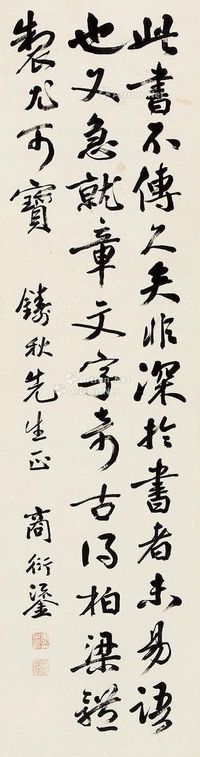 此書不傳久矣非深於書者未易語
也又急就章文字奇古得柏梁體
製尤可寶
鑄秋先生正
商衍鎏